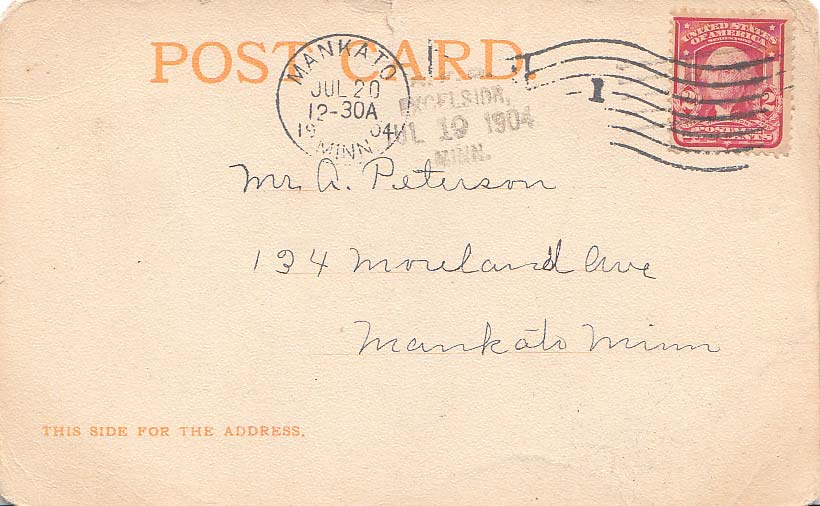 POST CARD.
MANKATO
JUL 20
12-30A
19 04
MINN
EXCELSIOR,
JUL 19 1904
MINN.
1
UNITED STATES
OF AMERICA
2 2
POSTAGE
Mr. A. Peterson
134 Moreland Ave
Mankato Minn
THIS SIDE FOR THE ADDRESS.